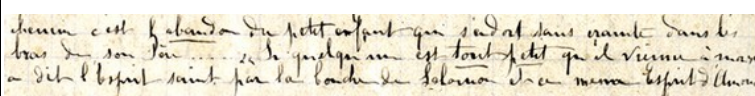 chemin c'est l'abandon du petit enfant qui s'endort sans crainte dans les
bras de son Père ..... "Si quelqu'un est tout petit qu'il vienne à moi"
a dit l'Esprit saint par la bouche de Salomon et ce même Esprit d'Amour